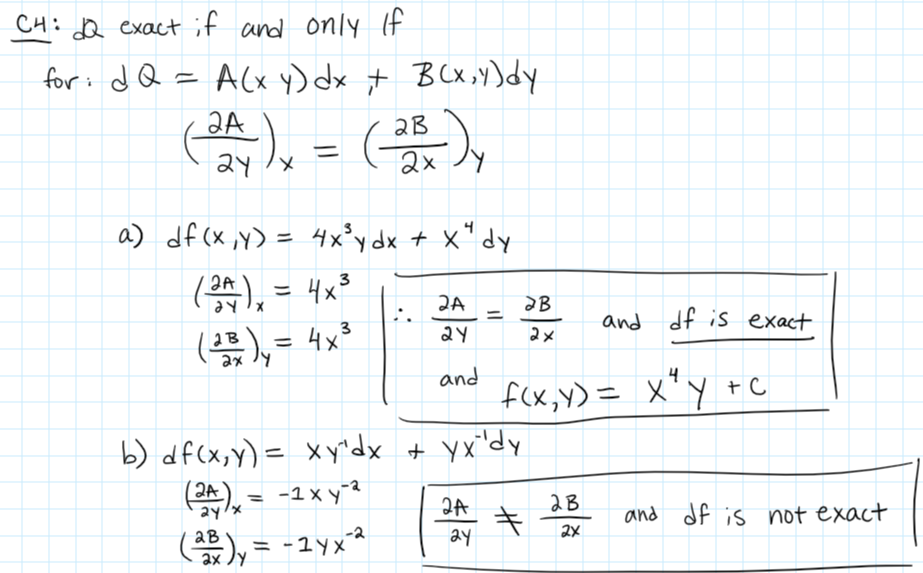 C4: dQ exact if and only if
for: dQ = A(x y)dx + B(x,y)dy
(∂A/∂y)x = (∂B/∂x)y
a) df(x,y) = 4x³y dx + x⁴ dy
(∂A/∂y)x = 4x³
(∂B/∂x)y = 4x³
∴ ∂A/∂y = ∂B/∂x and df is exact
and f(x,y) = x⁴y + C
b) df(x,y) = xy⁻¹dx + yx⁻¹dy
(∂A/∂y)x = -1xy⁻²
(∂B/∂x)y = -1yx⁻²
∂A/∂y ≠ ∂B/∂x and df is not exact